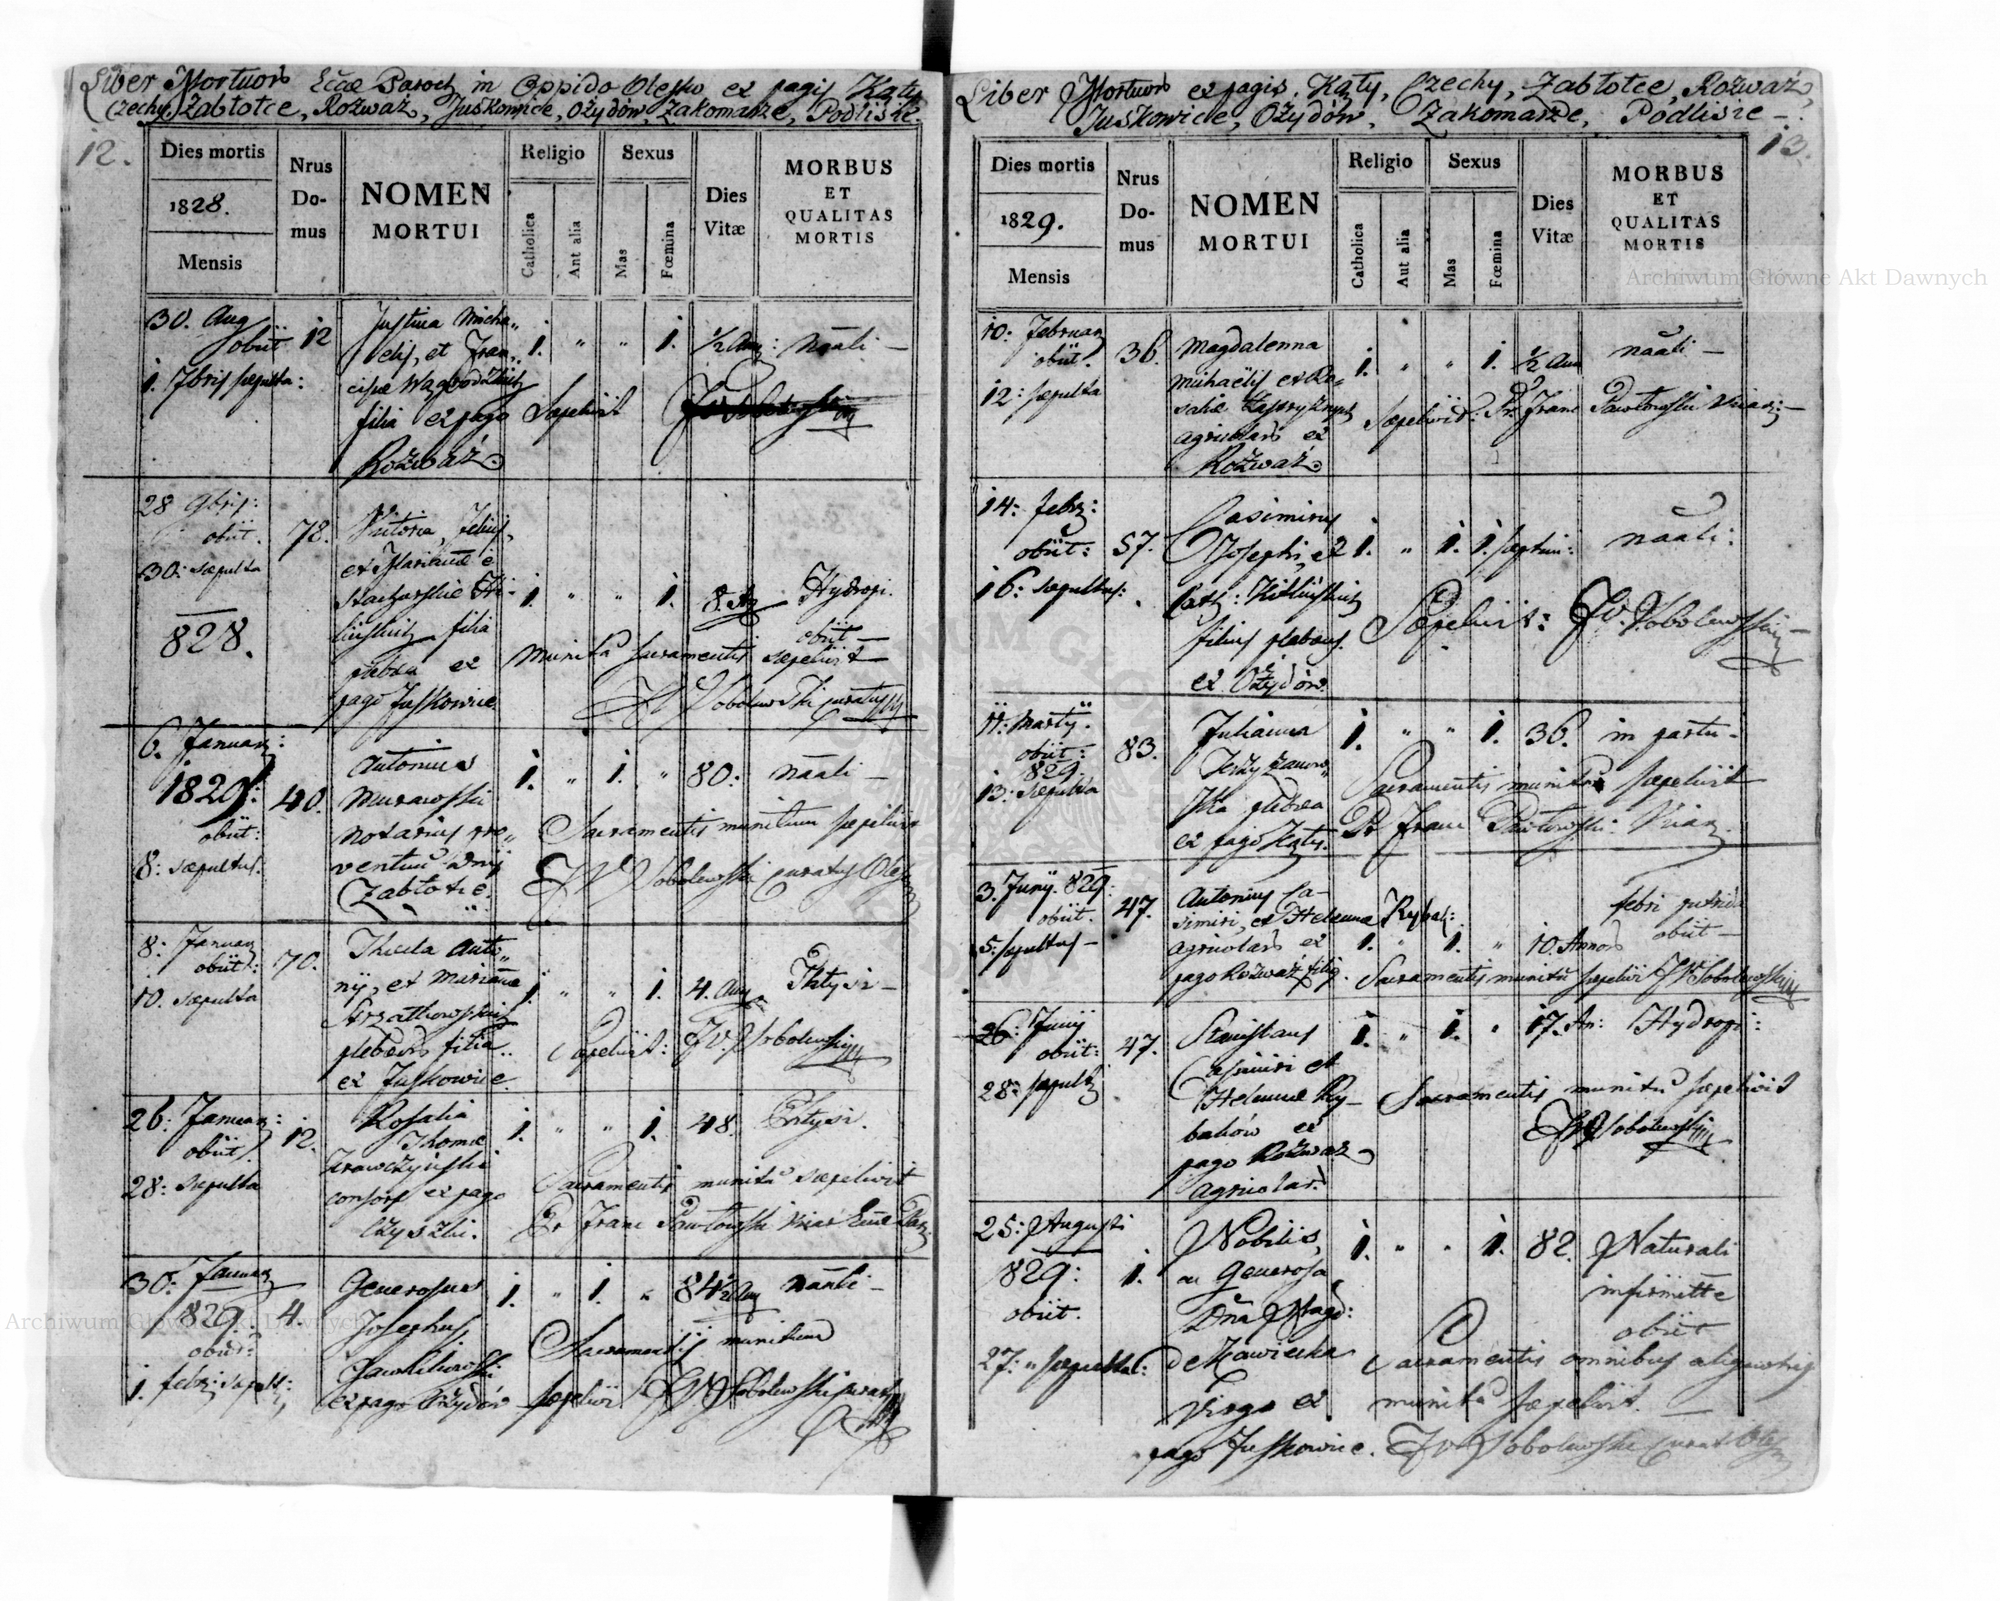 Liber Mortuor Ecae Paroch in Oppido Olesko ex pagis Kąty
Czechy, Zabłotce, Rożważ, Juśkowice, Ożydów, Zakomarze, Podlisie.
12.
Dies mortis
1828.
Mensis
Nrus
Do-
mus
NOMEN
MORTUI
Religio
Catholica
Aut alia
Sexus
Mas
Fœmina
Dies
Vitæ
MORBUS
ET
QUALITAS
MORTIS
30. Aug
obiit 12
1. 7bris sepulta:
Justina Micha„
elis, et Fran„
cisae
filia ex pago
Rożważ
1. " " 1. ½ An: nāāli —
Sepelivit
28 9bris:
obiit. 78.
30: sæpulta
828.
filia
plebea ex
pago Juśkowice
1. " " 1. 8. An Hydropi.
obiit —
munita Sacramentis sæpelivit
Sobolewski curatus
6. Januar:
1829: 40.
obiit:
8: sæpultus.
Antonius
Murawski
notarius pro„
ventuu Dnij
Zabłotce
1. " 1. " 80: nāāli —
Sacramentis munitum sepelivit
JW Sobolewski curatus Oles
8: Januar
obiit: 70.
10. sæpulta
Thecla Anto„
nij, et Mariannae
Strzałkowskich
plebeor filia
ex Juskowice
1. " " 1. 4. An Phtysi —
Sepelivit: JW. Sobolewski
26: Januar:
obiit. 12.
28: sæpulta
Rosalia
Thomae
Krawczyński
consors ex pago
1. " " 1. 48. Phtysi.
Sacramentis munita sæpelivit
Pr Franc Pawłowski Vicar
30: Januar
829. 4.
obiit
1. febr: sepult:
Generosus
Josephus
ex pago Ożydów
1. " 1. " 84½ An nāāli —
Sacramentis munitum
sepelivi JW Sobolewski curat
Liber Mortuor ex pagis. Kąty, Czechy, Zabłotce, Rożważ,
Juśkowice, Ożydów, Zakomarze, Podlisie —
13.
Dies mortis
1829.
Mensis
Nrus
Do-
mus
NOMEN
MORTUI
Religio
Catholica
Aut alia
Sexus
Mas
Fœmina
Dies
Vitæ
MORBUS
ET
QUALITAS
MORTIS
10: Februar
obiit. 36.
12: sepulta
Magdalenna
Michaëlis et Ro„
saliae
agricolar ex
Rożważ
1. " " 1. ½ Ann nāāli —
Sæpelivit: Pr. Franc Pawłowski Vicar: —
14: febr:
obiit: 57.
16: sepultus:
Casimirus
Josephi, et
Cath:
filius plebeus.
ex Ożydów.
1. " 1. 1. septim: nāāli:
Sæpelivit: JW. Sobolewski
11: Martij
obiit: 83.
829.
13: sæpulta
Julianna
plebea
ex pago Kąty.
1. " " 1. 36. in partu —
Sacramentis munita sæpelivit
Pr Franc Pawłowski Vicar.
3. Junij. 829:
obiit. 47.
5: sepultus —
Antonius Ca-
simiri, et Helenna Rybak:
agricolar ex
pago Rożważ filius.
1. " 1. " 10. Annor
febri putrida
obiit —
Sacramentis munitu sepelivi JW Sobolewski
26: Junij
obiit: 47.
28: sepult
Stanislaus
Casimiri et
Helennae Ry-
baków ex
pago Rożważ
agricolar.
1. " 1. " 17. An: Hydropi:
Sacramentis munitu sæpelivit
JW Sobolewski
25: Augusti
829: 1.
obiit.
27: " sepulta:
Nobilis,
ac Generosa
Dna Magd:
virgo ex
pago Juśkowice.
1. " " 1. 82. Naturali
infirmitte
obiit
Sacramentis omnibus
munita sæpelivit.
JW Sobolewski curat
Archiwum Główne Akt Dawnych
Archiwum Główne Akt Dawnych